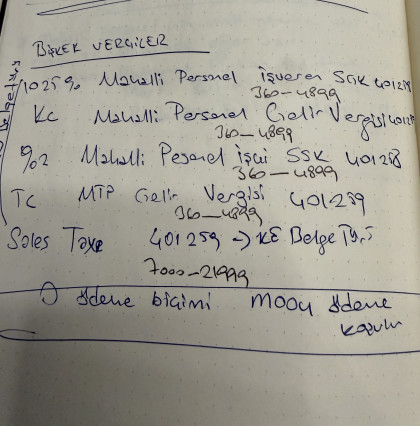 BİŞKEK VERGİLER
1025% Mahalli Personel İşveren SGK 401288
360-4899
KC Mahalli Personel Gelir Vergisi
360-4899
%2 Mahalli Pesonel İşçi SSK 401288
360-4899
TC MTP Gelir Vergisi 401289
360-4899
Sales Taxe 401259 → KE Belge
7000-21999
ödeme biçimi M004 ödeme